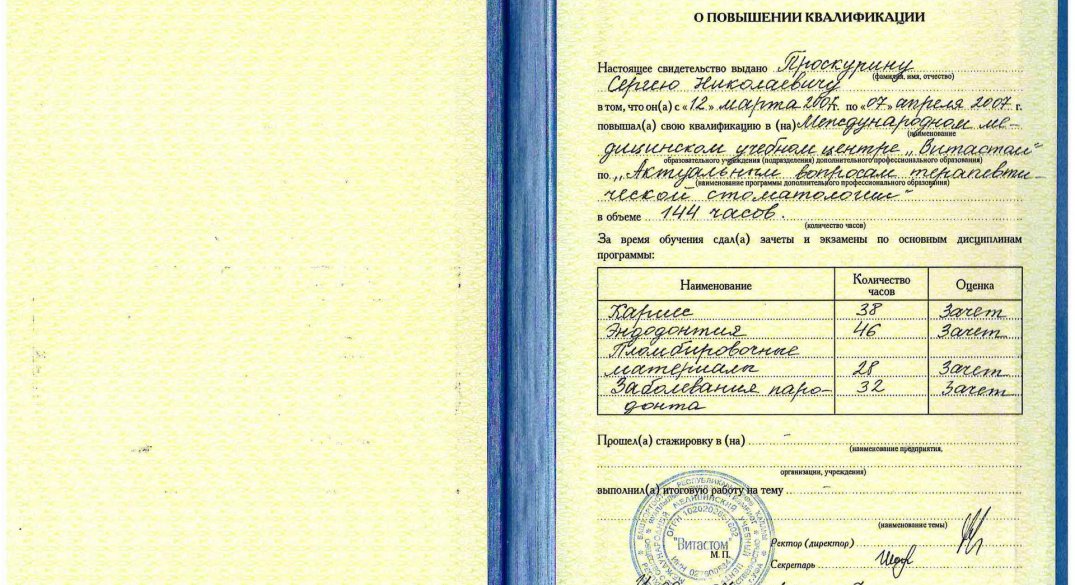 О ПОВЫШЕНИИ КВАЛИФИКАЦИИ
Настоящее свидетельство выдано Проскурину
(фамилия, имя, отчество)
Сергею Николаевичу
в том, что он(а) с «12» марта 2007г. по «07» апреля 2007 г.
повышал(а) свою квалификацию в (на) Международном ме-
(наименование
дицинском учебном центре „Витастом"
образовательного учреждения (подразделения) дополнительного профессионального образования)
по „Актуальным вопросам терапевти-
(наименование программы дополнительного профессионального образования)
ческой стоматологии"
в объеме 144 часов.
(количество часов)
За время обучения сдал(а) зачеты и экзамены по основным дисциплинам
программы:
Наименование Количество часов Оценка
Кариес 38 Зачет
Эндодонтия 46 Зачет
Пломбировочные
материалы 28 Зачет
Заболевания паро- 32 Зачет
донта
Прошел(а) стажировку в (на) –
(наименование предприятия,
организации, учреждения)
выполнил(а) итоговую работу на тему –
(наименование темы)
"Витастом"
М. П.
Ректор (директор)
Секретарь